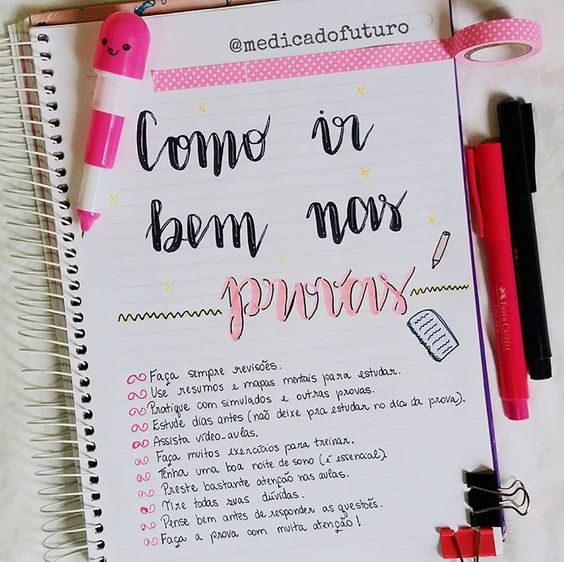 @medicadofuturo
Como ir
bem nas
provas
Faça sempre revisões.
Use resumos e mapas mentais para estudar.
Pratique com simulados e outras provas.
Estude dias antes (não deixe pra estudar no dia da prova).
Assista vídeo-aulas.
Faça muitos exercícios para treinar.
Tenha uma boa noite de sono (é essencial).
Preste bastante atenção nas aulas.
Tire todas suas dúvidas.
Pense bem antes de responder as questões.
Faça a prova com muita atenção!